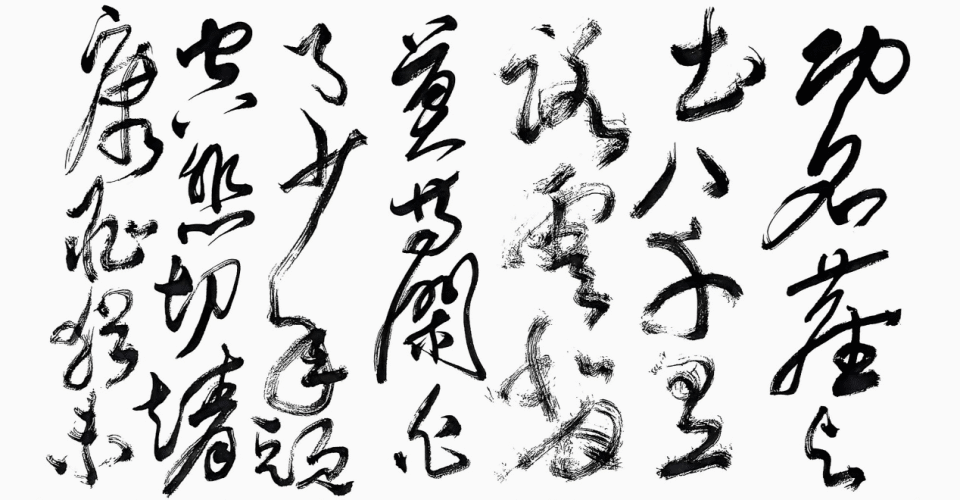 功名塵与
土八千里
路雲和月
莫等閑白
了少年頭
空悲切靖
康恥猶未